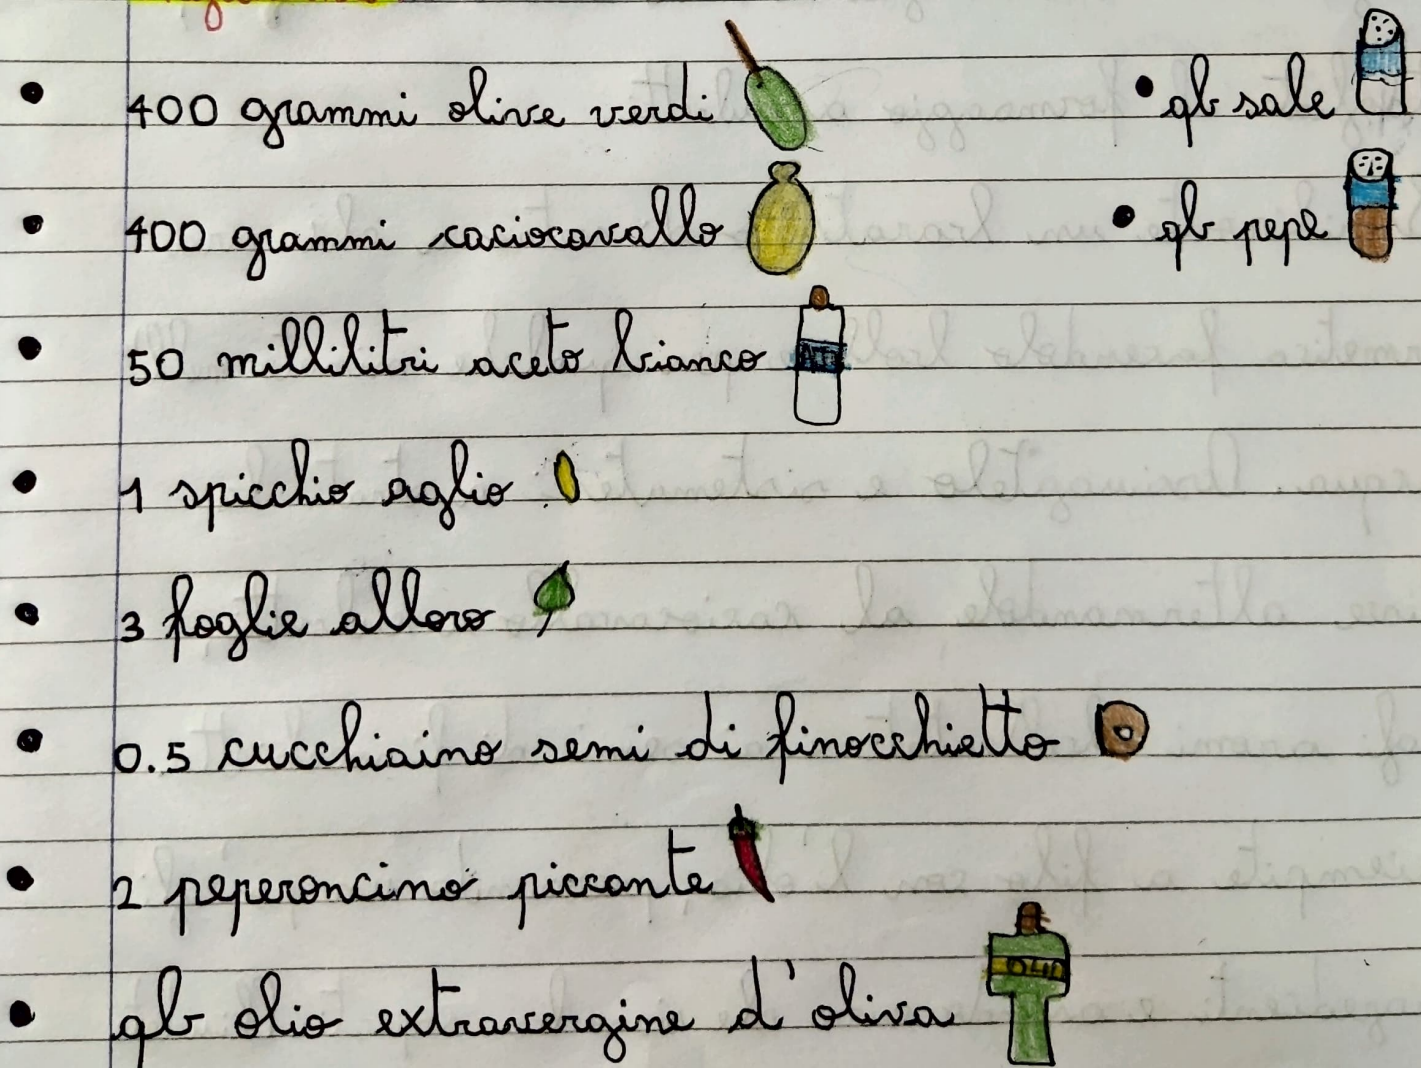 • 400 grammi olive verdi
• 400 grammi caciocavallo
• 50 millilitri aceto bianco
• 1 spicchio aglio
• 3 foglie alloro
• 0.5 cucchiaino semi di finocchietto
• 2 peperoncino piccante
• qb olio extravergine d'oliva
OLIO
• qb sale
• qb pepe